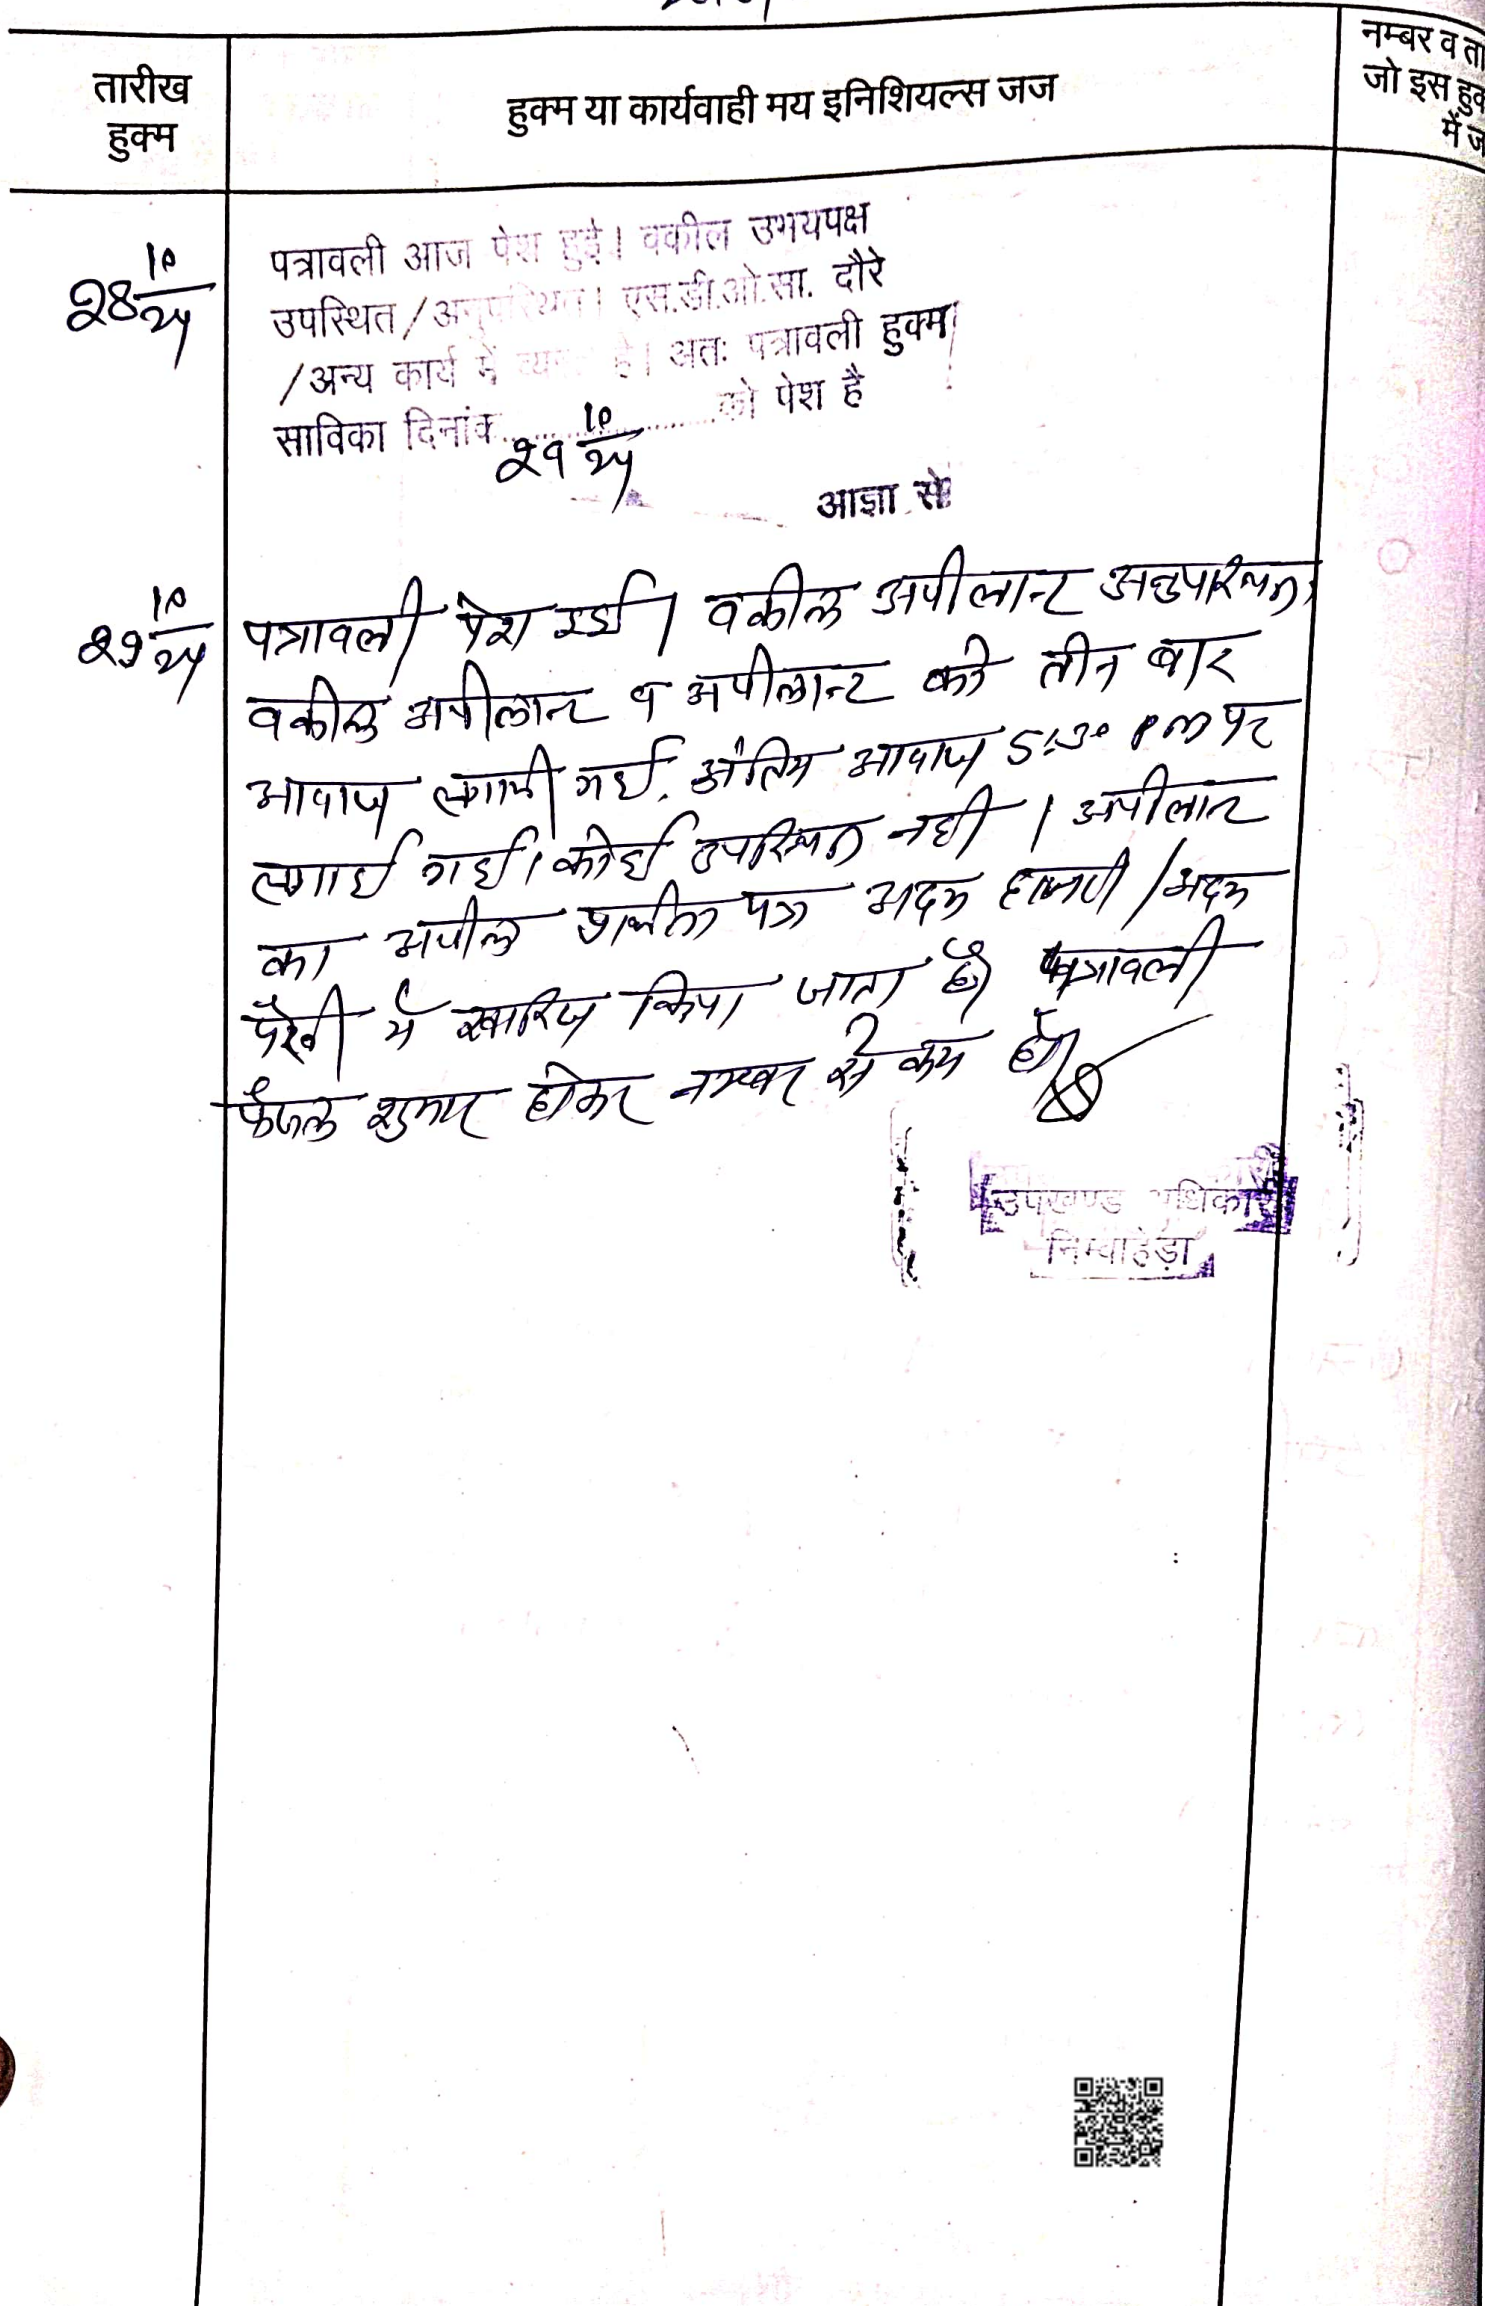 तारीख
हुक्म
हुक्म या कार्यवाही मय इनिशियल्स जज
नम्बर व ता
जो इस हुक
में ज
28 10/24
पत्रावली आज पेश हुई। वकील उभयपक्ष
उपस्थित/अनुपस्थित। एस.डी.ओ.सा. दौरे
/अन्य कार्य में व्यस्त है। अतः पत्रावली हुक्म
साविका दिनांक.....................को पेश है
29 10/24
आज्ञा से
29 10/24
पत्रावली पेश हुई। वकील अपीलान्ट अनुपस्थित,
वकील अपीलान्ट व अपीलान्ट को तीन बार
आवाज लगायी गई. अंतिम आवाज 5:30 PM पर
लगाई गई। कोई उपस्थित नही। अपीलान्ट
का अपील प्रार्थना पत्र अदम हाजरी/अदम
पैरवी में खारिज किया जाता है। पत्रावली
फैसल शुमार होकर नम्बर से कम हो।
उपखण्ड अधिकारी
निम्बाहेड़ा